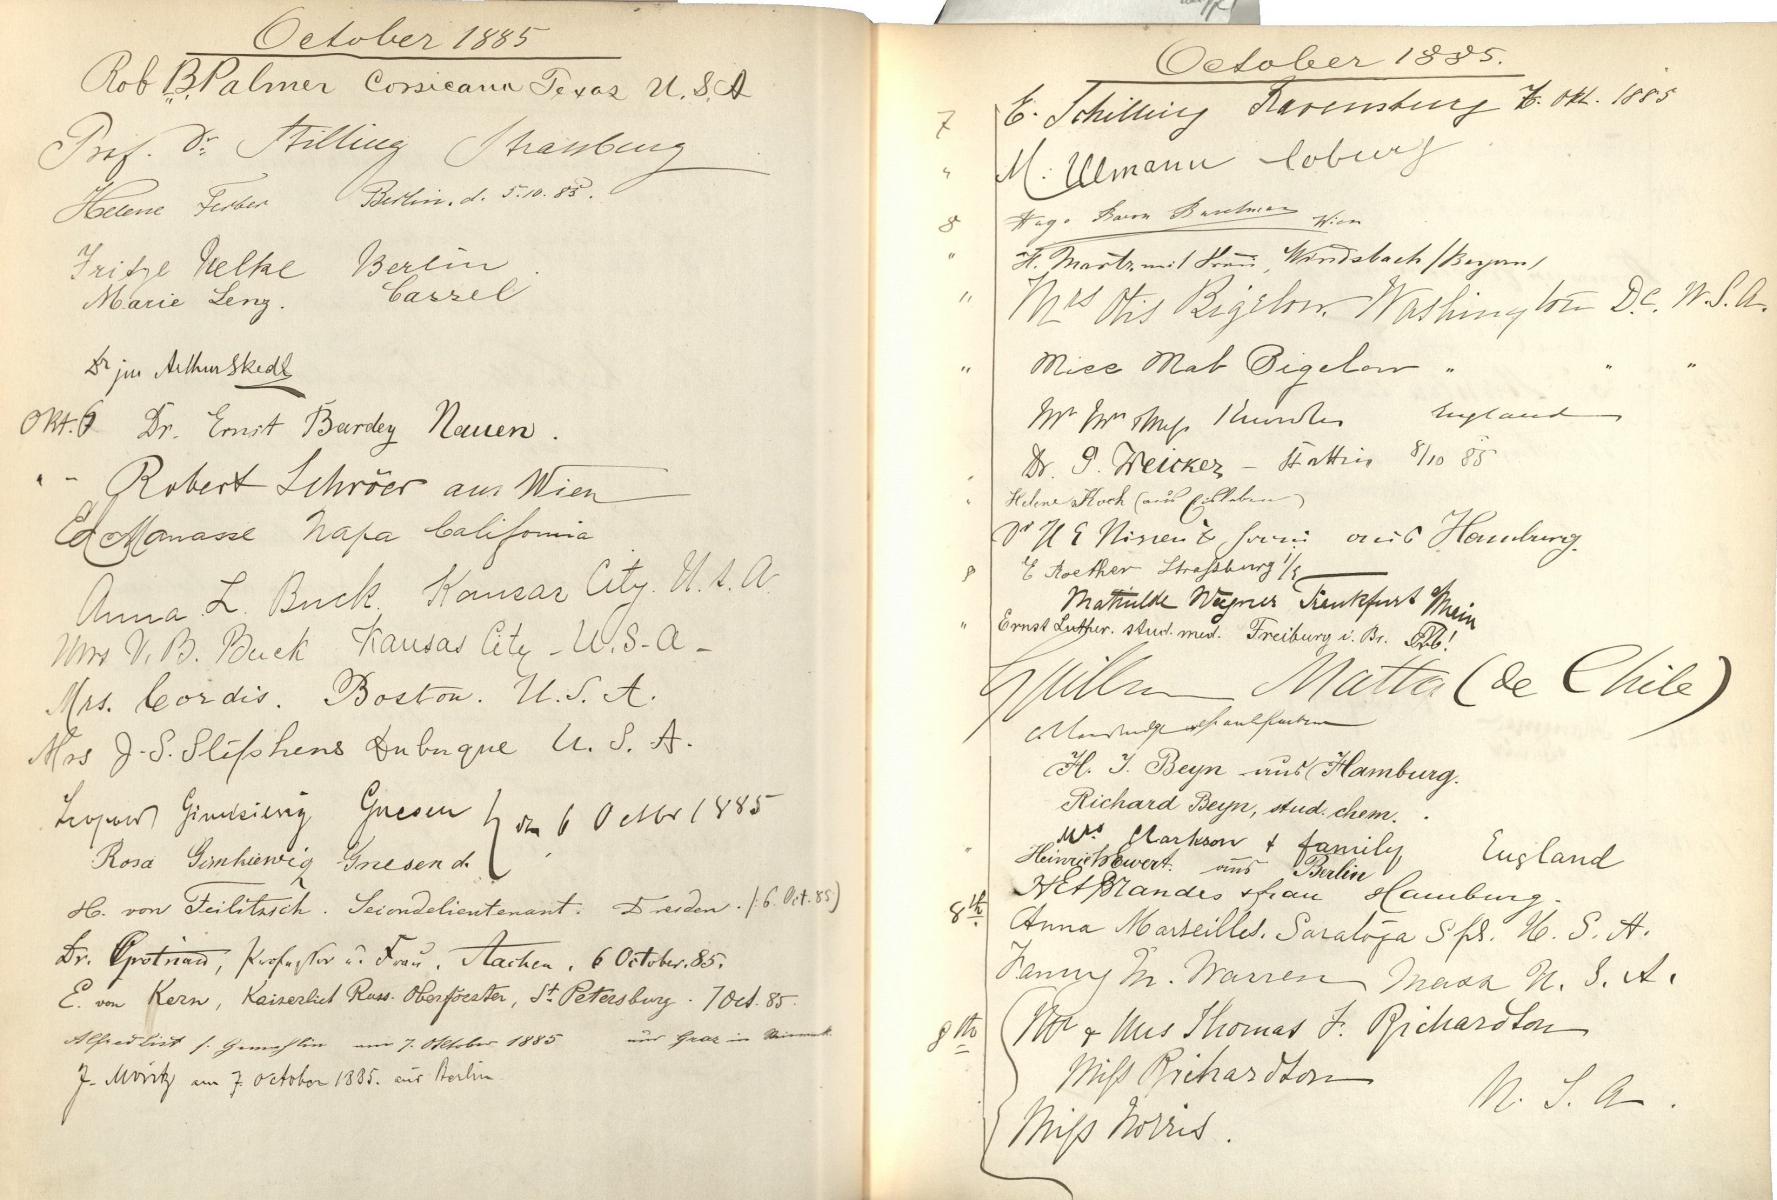 October 1885
Rob B. Palmer Corsicana Texas U.S.A
Prof. Dr. Stilling Strassburg
Helene Ferber Berlin. d. 5.10.85.
Fritze Nelke Berlin
Marie Lenz. Cassel
Dr jur Arthur Skedl
Okt. 6 Dr. Ernst Bardey Nauen.
" - Robert Schröer aus Wien
Ed Manasse Napa California
Anna L. Buck. Kansas City. U.S.A.
Mrs V. B. Buck Kansas City - U.S.A -
Mrs. Cordis. Boston. U.S.A.
Mrs J. S. Stephens Dubuque U.S.A.
Gnesen den 6 Octbr 1885
Rosa Gnesen d.
H. von Feilitzsch. Secondelieutenant. Dresden. (6. Oct. 85)
Dr. Professor u. Frau, Aachen, 6 October. 85.
E. von Kern, Kaiserlich Russ. Oberförster, St. Petersburg. 7 Oct. 85.
Alfred List s. Gemahlin am 7. Oktober 1885 aus Graz in
J. Moritz am 7. October 1885. aus Berlin
October 1885.
7 E. Schilling Ravensburg 7. Okt. 1885
" M. Ullmann Coburg
8 Hugo Baron Wien
" Windsbach / Bayern /
" Mrs Otis Bigelow. Washington D.C. U.S.A.
" Miss Mab Bigelow " " "
Mr Mrs Miss England
Dr. G. Weicker - Stettin 8/10 85
" Helene Koch (aus Eisleben)
Dr H E Nissen & Frau aus Hamburg.
8 E Roether Strassburg i/E
Mathilde Wagner Frankfurt a/Main
" Ernst Luther. stud. med. Freiburg i. Br.
Guillermo Matta (de Chile)
H. J. Beyn aus Hamburg.
Richard Beyn, stud. chem.
" Mrs Clarkson & family England
Heinrich Ewert. aus Berlin
Brandes & frau Hamburg.
8th Anna Marseilles. Saratoga Spr. U.S.A.
Fanny M. Warren Mass U.S.A.
8th Mr & Mrs Thomas F. Richardson
Miss Richardson
U.S.A.
Miss Norris.